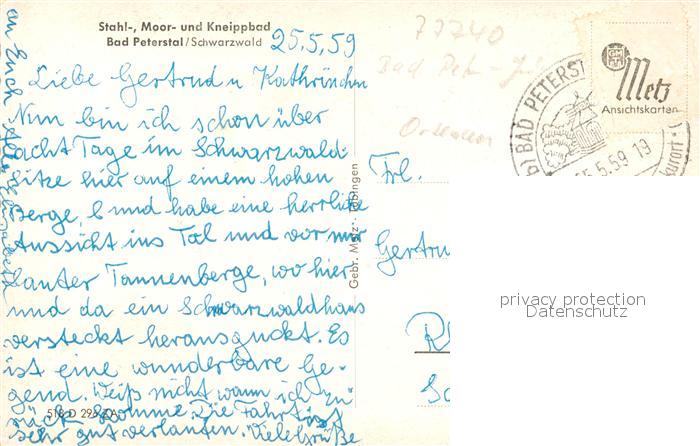 Stahl-, Moor- und Kneippbad
Bad Peterstal/Schwarzwald
25.5.59
Liebe Gertrud u Kathrinchen
Nun bin ich schon über
acht Tage im Schwarzwald.
Sitze hier auf einem hohen
Berge, und habe eine herrliche
Aussicht ins Tal und vor mir
lauter Tannenberge, wo hier
und da ein Schwarzwaldhaus
versteckt herausguckt. Es
ist eine wunderbare Ge-
gend. Weiß nicht wann ich zu-
rück komme. Die Fahrt ist
sehr gut verlaufen. Viele Grüße
an Euch
518 D 296
Gebr. Metz · Tübingen
77740
Bad Pet
BAD PETERST
25.5.59 19
kurort
Metz
Ansichtskarten
Frl.
Gertru
R
privacy protection
Datenschutz